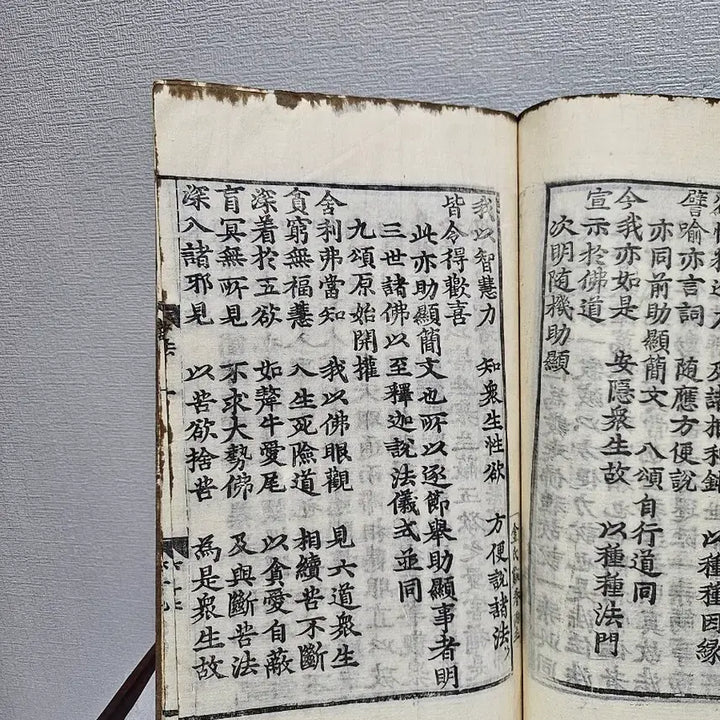 力 及諸根利鈍 以種種因緣
譬喻亦言詞 隨應方便說
亦同前助顯簡文 八頌自行道同
今我亦如是 安隱衆生故 以種種法門
宣示於佛道
次明隨機助顯
我以智慧力 知衆生性欲 方便說諸法
皆令得歡喜
此亦助顯簡文也所以逐節舉助顯事者明
三世諸佛以至釋迦說法儀式並同
九頌原始開權
舍利弗當知 我以佛眼觀 見六道衆生
貧窮無福慧 入生死險道 相續苦不斷
深着於五欲 如犛牛愛尾 以貪愛自蔽
盲冥無所見 不求大勢佛 及與斷苦法
深入諸邪見 以苦欲捨苦 為是衆生故